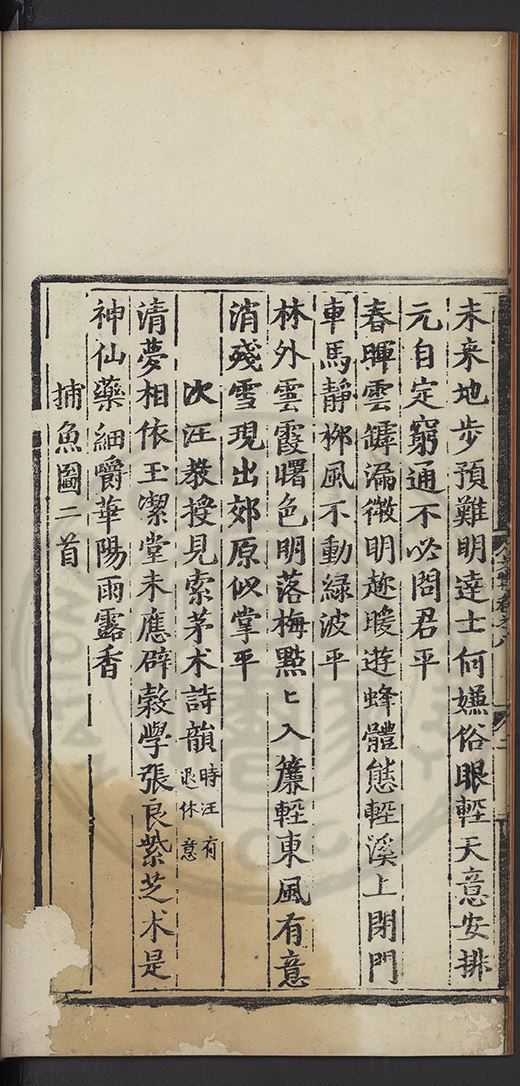 未來地步預難明達士何嫌俗眼輕天意安排
元自定窮通不必問君平
春暉雲罅漏微明趂暖遊蜂體態輕溪上閉門
車馬靜栁風不動緑波平
林外雲霞曙色明落梅㸃〻入簾輕東風有意
消殘雪現出郊原似掌平
次汪教授見索茅术詩韻時汪有退休意
清夢相依玉潔堂未應辟榖學張良紫芝术是
神仙藥細嚼華陽雨露香
捕魚圖二首